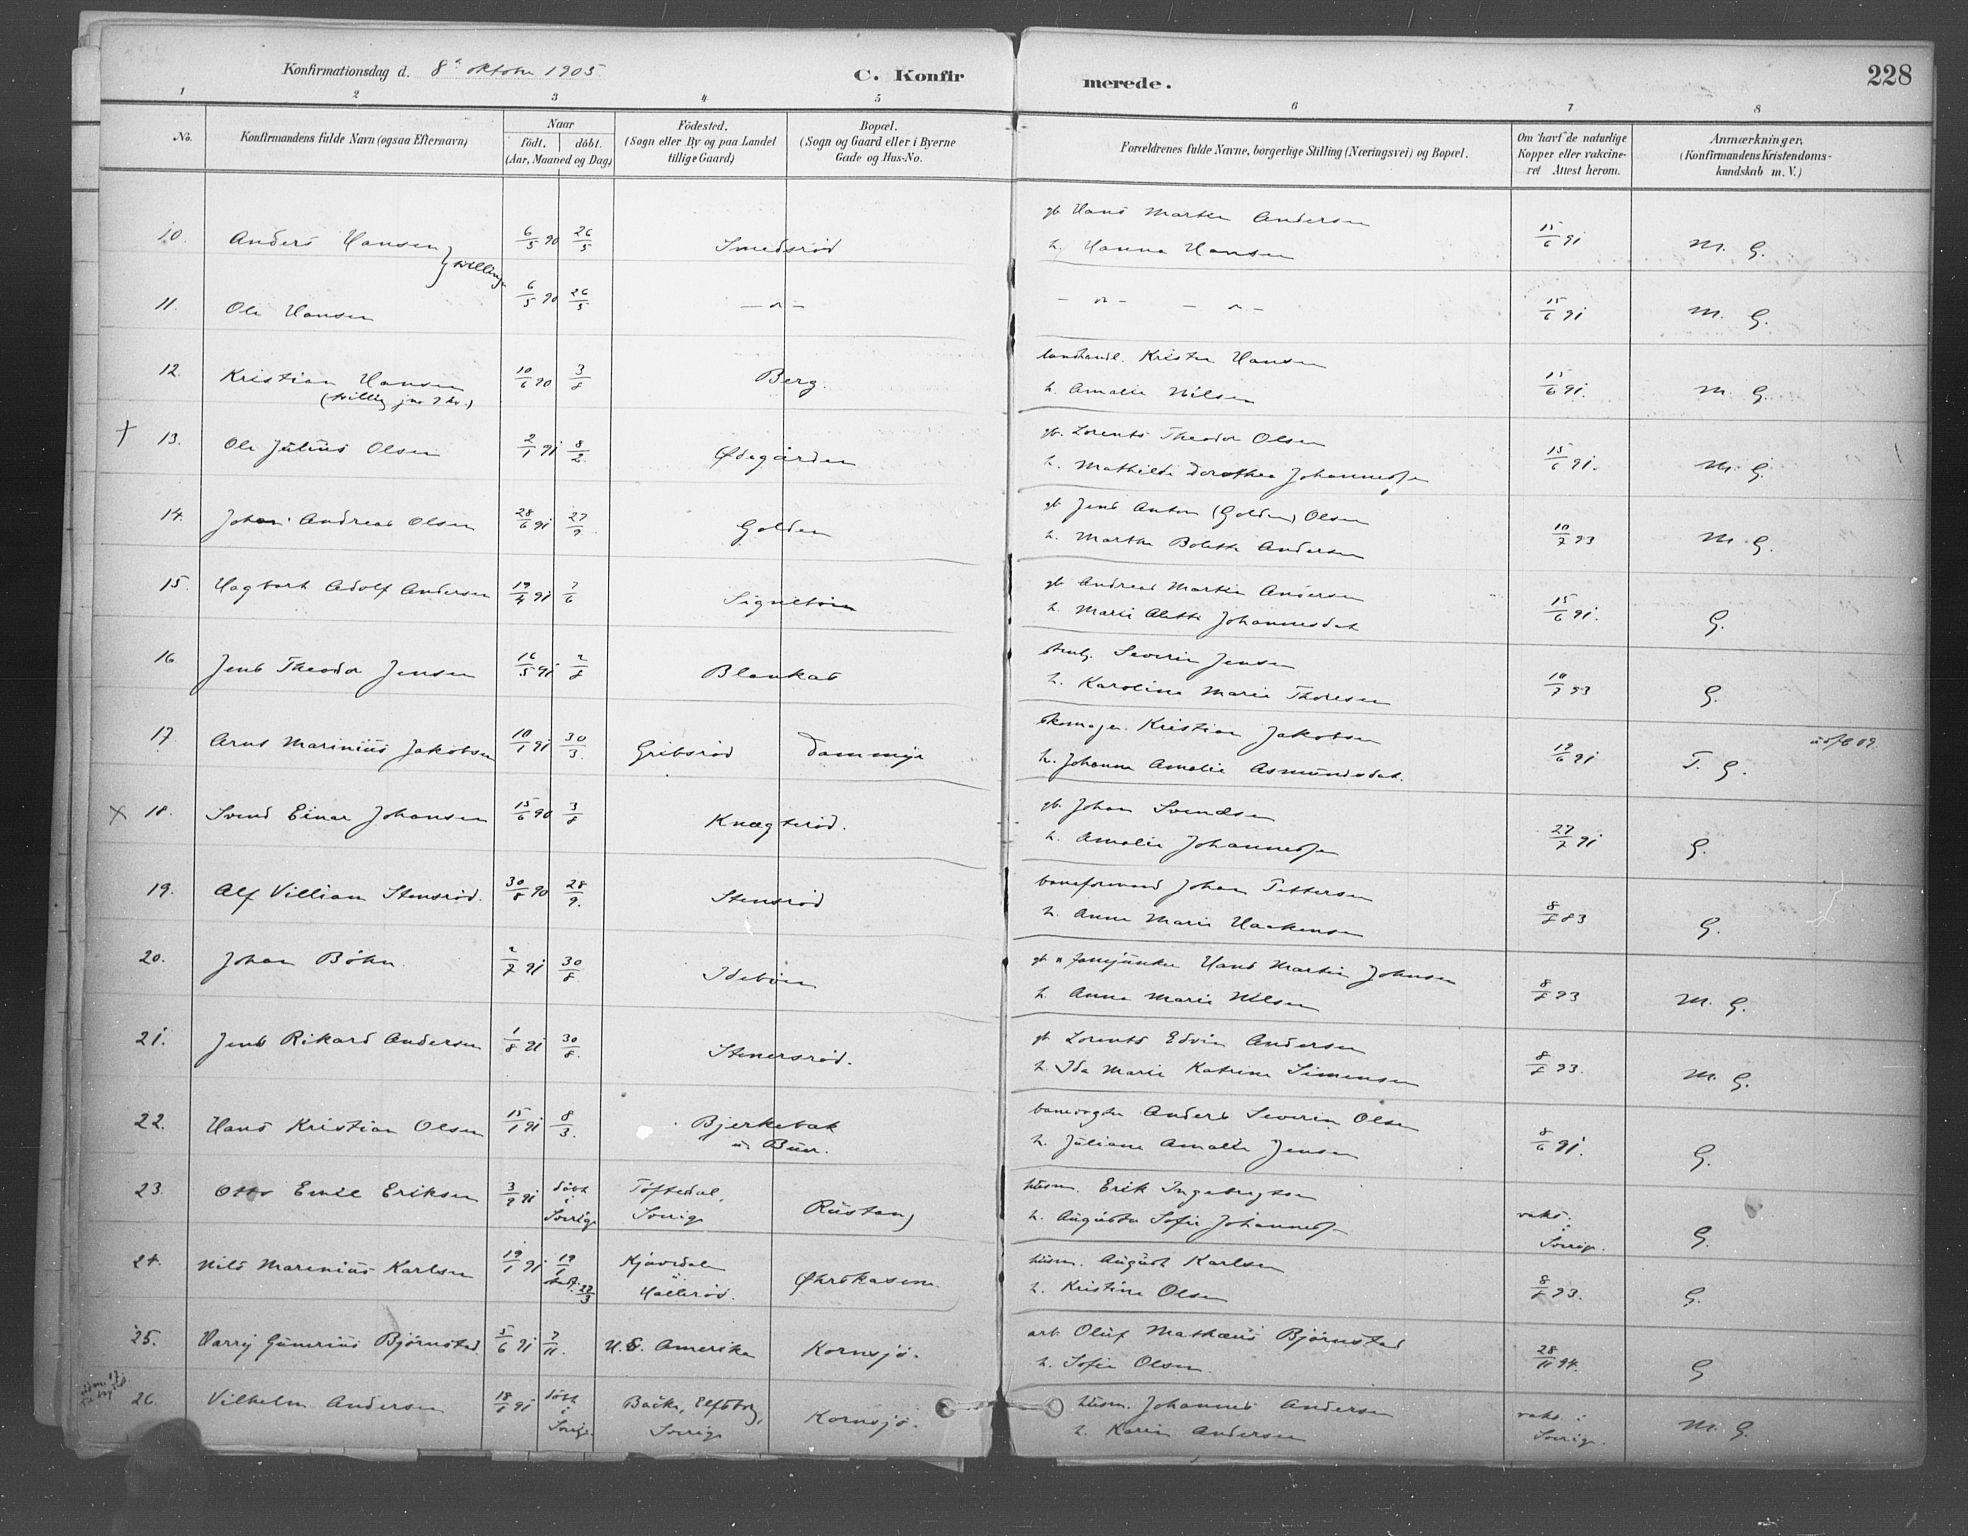 Konfirmationsdag d. 8de oktober 1905
C. Konfirmerede.
228
1 2 3 4 5 6 7 8
No.
Konfirmandens fulde Navn (ogsaa Efternavn)
Naar
født. døbt.
(Aar, Maaned og Dag)
Fødested.
(Sogn eller By og paa Landet
tillige Gaard)
Bopæl.
(Sogn og Gaard eller i Byerne
Gade og Hus-No.
Forældrenes fulde Navne, borgerlige Stilling (Næringsvei) og Bopæl.
Om havt de naturlige
Kopper eller vakcine-
ret Attest herom.
Anmærkninger.
(Konfirmandens Kristendoms-
kundskab m. V.)
10. Anders Hansen } tvillinger 6/5 90 26/5 Smedsrød gb. Hans Martin Andersen
h. Hanna Hansen 15/6 91 M. G.
11. Ole Hansen 6/5 90 26/5 — " — — " — — " — 15/6 91 M. G.
12. Kristian Hansen 10/6 90 3/8 Berg. landhandl. Krister Hansen
h. Amalie Nilsen 15/6 91. M. G.
13. Ole Julius Olsen 2/1 91 8/2. Ødegården gb. Lorents Theodor Olsen
h. Mathilde Dorothea Johannessen 15/6 91. M. G.
14. Johan Andreas Olsen 28/6 91 27/9. Golden gb. Jens Anton (Golden) Olsen
h. Marthe Bolette Andersen 10/7 93 M. G.
15. Hagbart Adolf Andersen 19/4 91 7/6 Signebøen gb. Andreas Martin Andersen
h. Marie Alette Johannesdat 15/6 91. G.
16 Jens Theodor Jensen 16/5 91 2/8 Blankas Severin Jensen
h. Karoline Marie Thoresen 10/7 93 G.
17. Arns Marinius Jakobsen 10/1 91 30/3. Gribsrød Dammyr skomager Kristian Jakobsen
h. Johanne Amalie Asmundsdat. 19/6 91 T. G. udf. 09.
18. Svend Einar Johansen 15/6 90 3/8 Knægterød. gb. Johan Svendsen
h. Amalie Johannessen 27/7 91 G.
19. Alf Villian Stensrød. 30/8 90 28/9. Stensrød baneformand Johan Pettersen
h. Anne Marie Haakensen 8/8 83 G.
20. Johan Böhn. 2/7 91 30/8 Idebøen gb. Hans Martin Johnsen
h. Anne Marie Nilsen 8/8 93 M. G.
21. Jens Rikard Andersen 1/8 91 30/8. Stenersrød. gb Lorents Edvin Andersen
h. Ida Marie Katrine Simensen 8/8 93. M. G.
22. Hans Kristian Olsen 15/1 91 8/3. Bjerkebak
u. Buer. banevogter Anders Severin Olsen
h. Juliane Amalie Jensen 8/6 91. G.
23. Otto Emil Eriksen 3/9 91 døbt
i
Sverige Töftedal,
Sverige Rustang husm. Erik Ingebregtsen
h. Augusta Sofie Johannessen vaks.
i
Sverige. G.
24. Nils Marenius Karlsen 19/1 91 19/1
stadf. 22/3 Kjøvedalen
u
Hallerød. Ørsrkasene. husm. August Karlsen
h. Kristine Olsen 8/8 93. G.
25. Harry Gunerius Bjørnstad. 5/6 91 7/11. U. S. Amerika Kornsjø. arb. Oluf Mathæus Bjørnstad
h. Sofie Olsen. 28/11 94. G
26. Vilhelm Andersen 18/1 91 døbt
i
Sverige. Bäcke, Elfsborg,
Sverige Kornsjø. husm. Johannes Andersen
h. Karin Andersen vaks. i
Sverige. M. G.